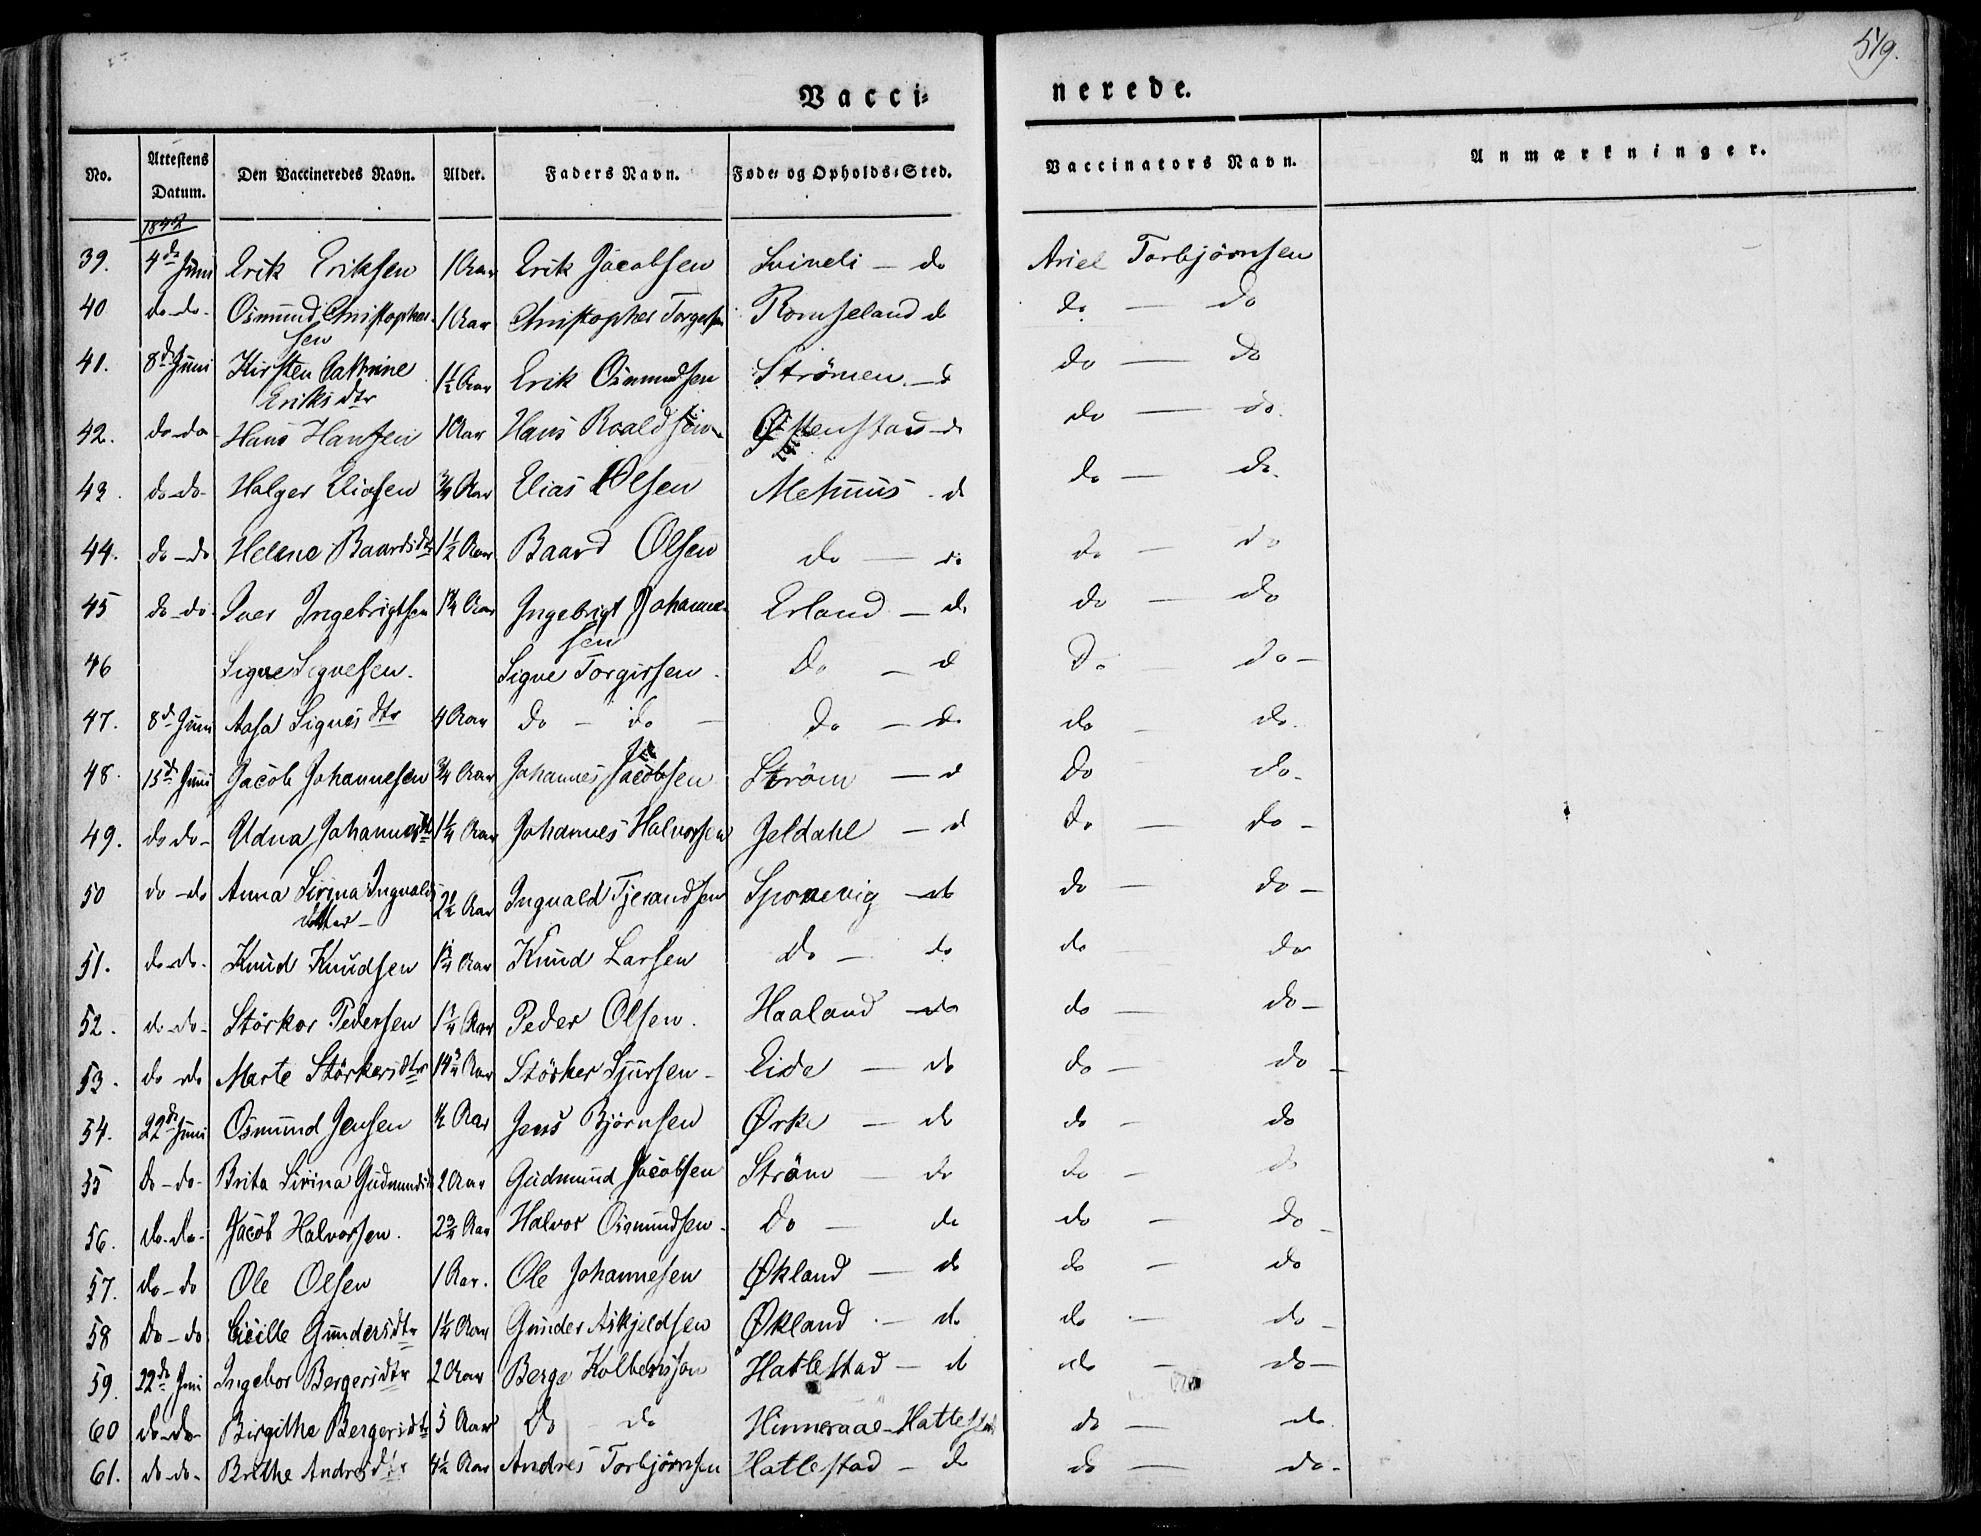 519.
Vacci=
nerede.
No. Attestens Datum. Den Vaccineredes Navn. Alder. Faders Navn. Føde= og Opholds=Sted. Vaccinators Navn. Anmærkninger.
1842
39. 4de Juni Erik Eriksen 1 Aar Erik Jacobsen Svineli - do Ariel Torbjörnsen
40 do-do- Osmund Christopher- 1 Aar Christopher Torgersen Romseland do do - do
sen
41. 8de Juni Kirsten Cathrine 1½ Aar Erik Osmundsen Strömen - d do - do
Eriksdtr
42. do-do Hans Hansen 1 Aar Hans Roaldsen Østenstad - d do - do.
43. do-do- Holger Eliasen ¾ Aar Elias Olsen Mehuus - d do - do
44. do-do Helene Baardsdtr 1½ Aar Baard Olsen do - do do - do
45 do-do- Iver Ingebrigtsen 1¼ Aar Ingebrigt Johanne- Erland - do do - do
sen
46 Signe Signesen. Signe Torgersen. Do - d Do - do -
47. 8de Juni Aasa Signesdtr 4 Aar do - do - do - do do - do.
48. 15de Juni Jacob Johannesen ¾ Aar Johannes Jacobsen Ström - d do do-
49. do do- Udna Johannesdtr 1¼ Aar Johannes Halvorsen Jeldahl - d do - do -
50 do-do Anna Sirina Ingvalds 2½ Aar Ingvald Tjerandsen Sponevig - do do - do -
datter -
51. do-do- Knud Knudsen 1¾ Aar Knud Larsen do - do do - do
52. do-do- Störkor Pedersen 1¼ Aar Peder Olsen. Haaland - do do - do -
53. do-do Marte Störkersdtr 14¾ Aar Störker Sjursen - Eide - do do - do -
54. 22de Juni Osmund Jensen ½ Aar Jens Bjørnsen Ørke - do do - do
55 do-do- Brita Sirina Gudmundsd 2 Aar Gudmund Jacobsen Ström - do do - do
56. do-do- Jacob Halvorsen. 2¾ Aar Halvor Osmundsen - Do - do do - do -
57. do-do Ole Olsen 1 Aar. Ole Johannesen Økland - do do - do
58 Do-do Cicille Gundersdtr 1¼ Aar Gunder Askjeldsen Økland - do do - do -
59. 22de Juni Ingebor Bergersdtr 2 Aar Berge Kolbensson Hatlestad - do do - do -
60 do-do- Birgithe Bergersdtr 5 Aar Do - do Hinneraae-Hattest do - do
61. do-do- Brithe Andresdtr 4½ Aar Andres Torbjörnsen Hatlestad - do do - do -